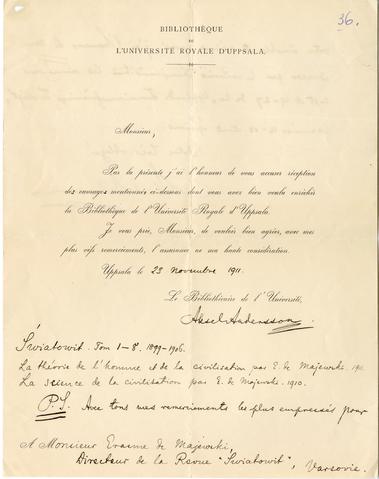 36.
BIBLIOTHÈQUE
DE
L'UNIVERSITÉ ROYALE D'UPPSALA.
Monsieur,
Par la présente j'ai l'honneur de vous accuser réception
des ouvrages mentionnés ci-dessous dont vous avez bien voulu enrichir
la Bibliothèque de l'Université Royale d'Uppsala.
Je vous prie, Monsieur, de vouloir bien agréer, avec mes
plus vifs remerciements, l'assurance de ma haute considération.
Uppsala le 23 novembre 1911.
Le Bibliothécaire de l'Université,
Aksel Andersson.
Światowit. Tom 1-8. 1899-1906.
La théorie de l'homme et de la civilisation par E. de Majewski. 1911.
La science de la civilisation par E. de Majewski. 1910.
P.S. Avec tous mes remerciements les plus empressés pour
A Monsieur Erasme de Majewski,
Directeur de la Revue "Światowit", Varsovie.